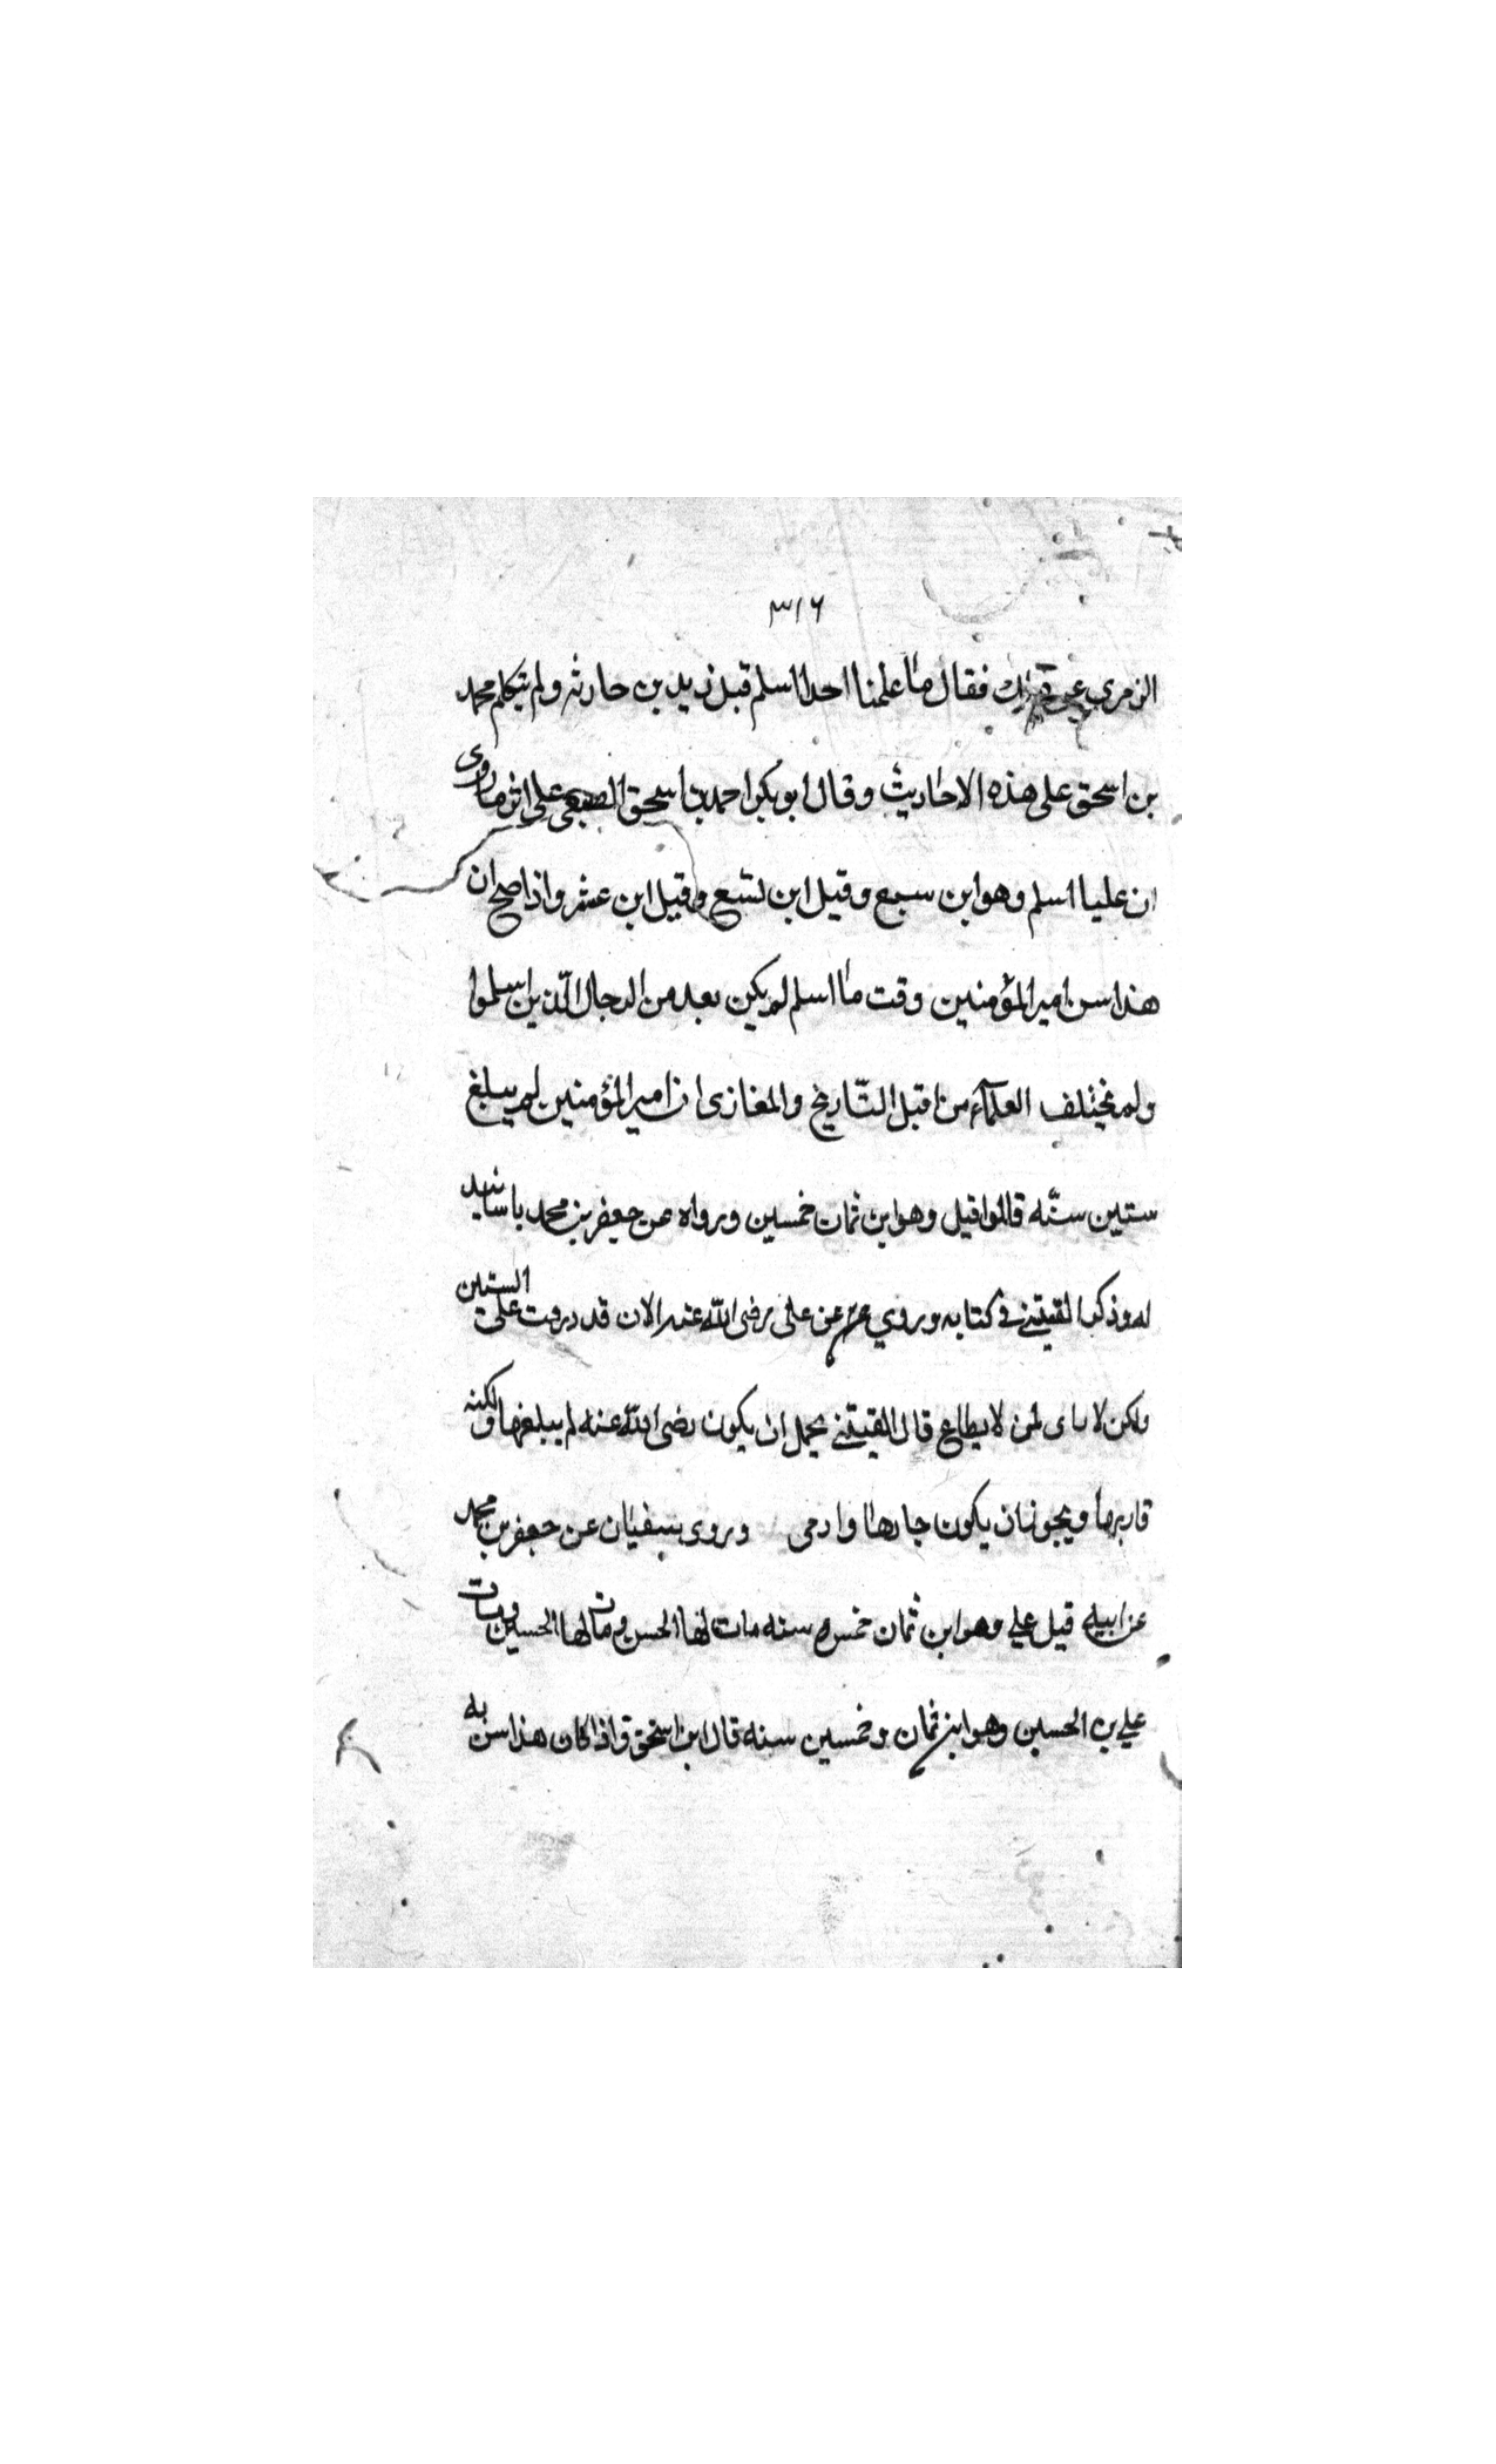 ٣١٦
الزهري عن ذلك فقال ما علمنا احدا اسلم قبل زيد بن حارثه ولم يتكلم محمد
بن اسحق على هذه الاحاديث وقال ابو بكر احمد بن اسحق الصبغي على اثر ما روى
ان عليا اسلم وهو ابن سبع وقيل ابن تسع وقيل ابن عشر واذا صح ان
هذا سن امير المؤمنين وقت ما اسلم لم يكن بعد من الرجال الّذين اسلموا
ولم يختلف العلمآء من اقبل التّاريخ والمغازى ان امير المؤمنين لم يبلغ
ستين سنّه قالوا قيل وهو ابن ثمان خمسين ورواه عن جعفر بن محمد باسانيد
له وذكر القيتبي فى كتابه وروي عن على رضى اللّه عنه الان قد درفت على الستين
ولكن لا راى لمن لا يطاع قال القيتبي يحمل ان يكون رضى اللّه عنه لم يبلغها ولكنه
قاربها ويجوز ان يكون جازها وارمى وروى سفيان عن جعفر بن محمد
عن ابيه قيل علي وهو ابن ثمان خمس سنه مات لها الحسن ومات لها الحسين ومات
علي بن الحسين وهو ابن ثمان وخمسين سنه قال ابن اسحق واذا كان هذا سن به